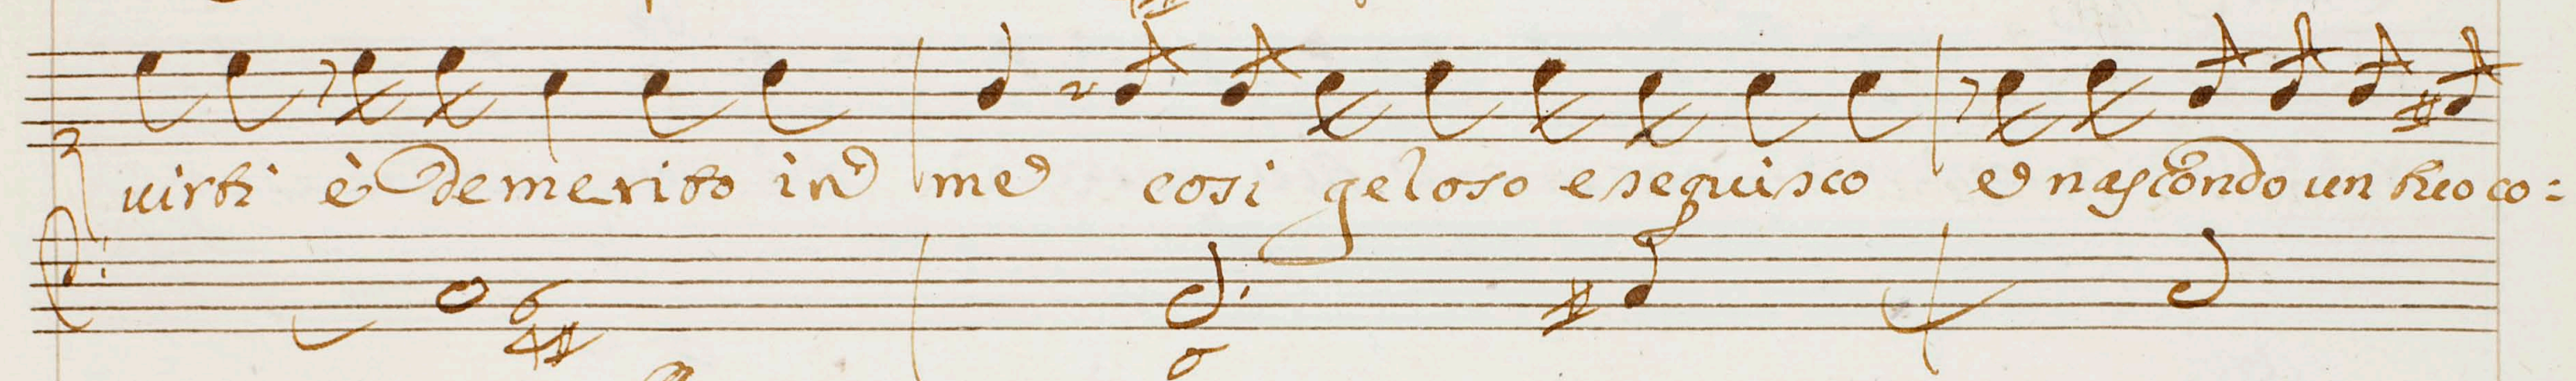 uirti è demerito in me cosi geloso eseguisco e nascondo un fuoco:
6
4#
6